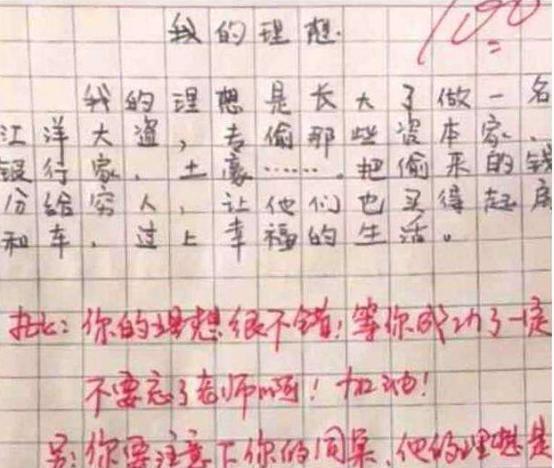 我的理想
100
我的理想是长大了做一名
江洋大盗，专偷那些资本家、
银行家、土豪……把偷来的钱
分给穷人，让他们也买得起房
和车，过上幸福的生活。
批文：你的理想很不错！等你成功了一定
不要忘了老师啊！加油！
另：你要注意下你的同桌，他的理想是